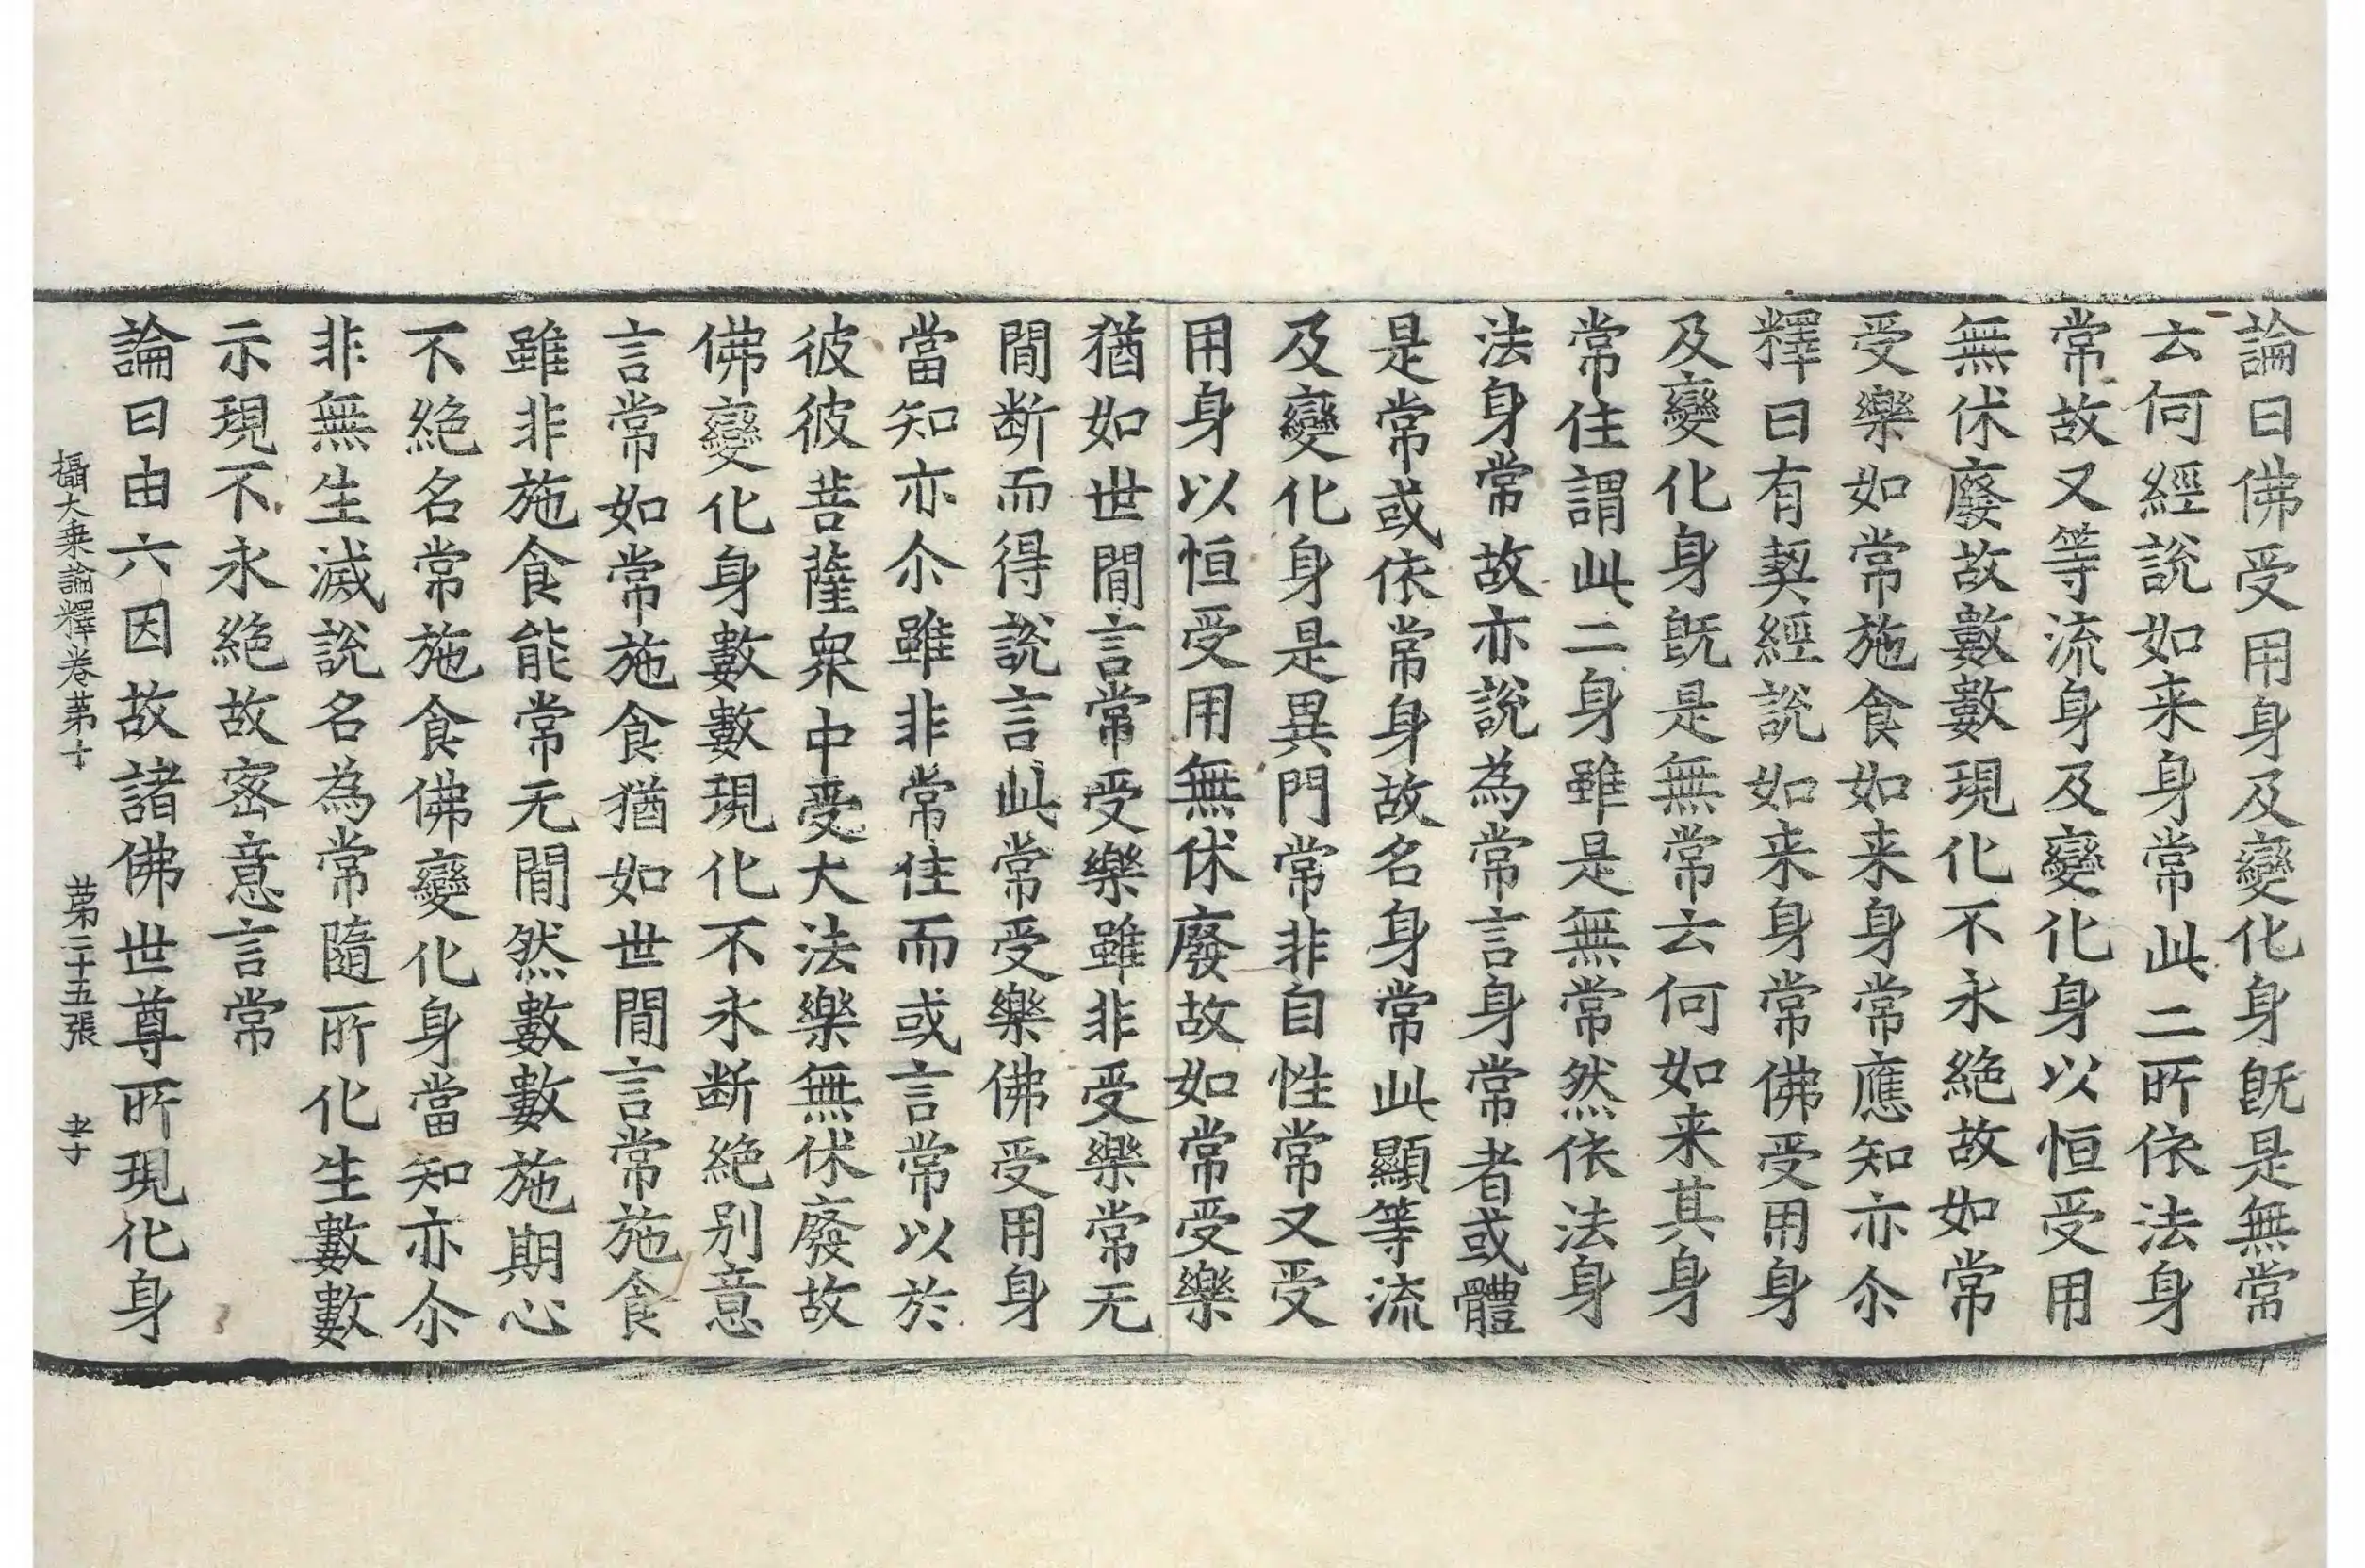 論曰佛受用身及變化身旣是無常
云何經說如来身常此二所依法身
常故又等流身及變化身以恒受用
無休廢故數數現化不永絕故如常
受樂如常施食如来身常應知亦尒
釋曰有契經說如来身常佛受用身
及變化身旣是無常云何如来其身
常住謂此二身雖是無常然依法身
法身常故亦說為常言身常者或體
是常或依常身故名身常此顯等流
及變化身是異門常非自性常又受
用身以恒受用無休廢故如常受樂
猶如世間言常受樂雖非受樂常无
間断而得說言此常受樂佛受用身
當知亦尒雖非常住而或言常以於
彼彼菩薩衆中受大法樂無休廢故
佛變化身數數現化不永断絕别意
言常如常施食猶如世間言常施食
雖非施食能常无間然數數施期心
不絕名常施食佛變化身當知亦尒
非無生滅說名為常隨所化生數數
示現不永絕故密意言常
論曰由六因故諸佛世尊所現化身
攝大乗論釋卷苐十 苐二十五張